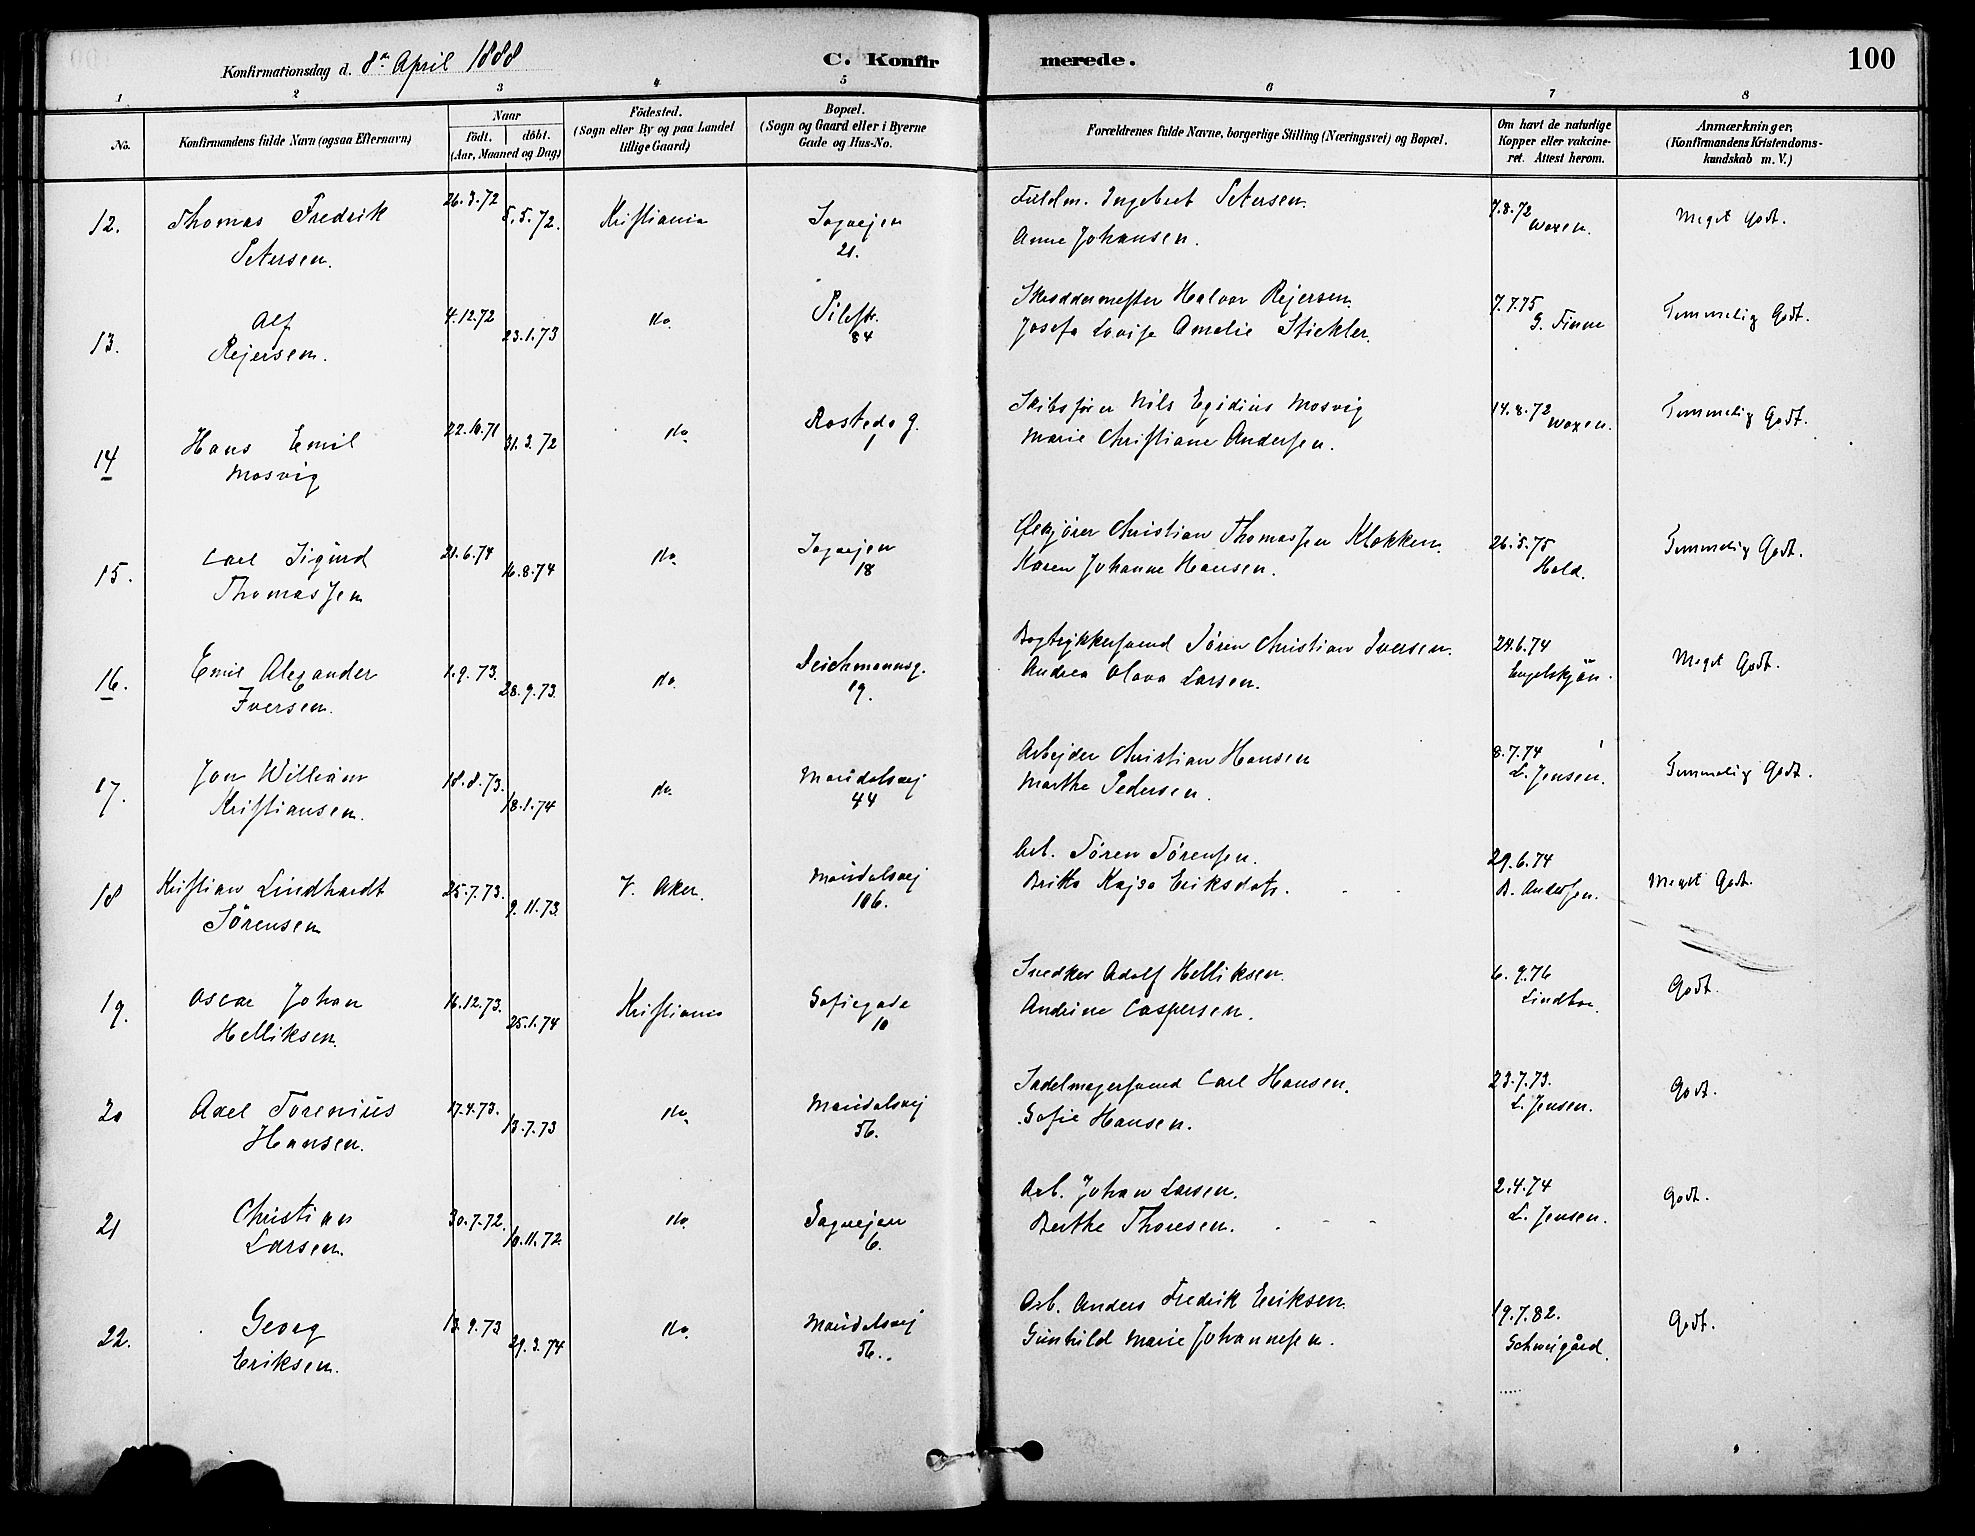 Konfirmationsdag d. 8de April 1888
C. Konfirmerede.
100
1 2 3 4 5 6 7 8
No.
Konfirmandens fulde Navn (ogsaa Efternavn)
Naar
födt. döbt.
(Aar, Maaned og Dag)
Födested.
(Sogn eller By og paa Landet
tillige Gaard)
Bopæl.
(Sogn og Gaard eller i Byerne
Gade og Hus-No.
Forældrenes fulde Navne, borgerlige Stilling (Næringsvei) og Bopæl.
Om havt de naturlige
Kopper eller vakcine-
ret. Attest herom.
Anmærkninger.
(Konfirmandens Kristendoms-
kundskab m. V.)
12. Thomas Fredrik 26.3.72 5.5.72. Kristiania Sagvejen Fuldm. Ingebret Petersen. 7.8.72 Meget Godt.
Petersen. 21. Anne Johansen. Woxen.
13. Alf 4.12.72 23.1.73 do. Pilestr. Skræddermester Halvor Rejersen. 7.7.75 Temmelig Godt.
Rejersen. 84 Josefa Lovise Amalie Stickler. G. Finne
14 Hans Emil 22.10.71 31.3.72 do Rostedsg. Skibsfører Nils Egidius Mosvig 14.8.72 Temmelig Godt.
Mosvig 1 Marie Christiane Andersen. Woxen.
15. Carl Sigurd 21.6.74 16.8.74 do. Sagvejen Christian Thomassen Klokken. 26.5.75 Temmelig Godt.
Thomassen 18 Karen Johanne Hansen. Hald.
16. Emil Alexander 1.9.73. 28.9.73. do. Deichmannsg. Bogtrykkersvend Sören Christian Iversen. 24.6.74 Meget Godt.
Iversen. 19. Andrea Olava Larsen. Engelskjön.
17. Jon William 18.8.73. 18.1.74 do. Maridalsvej Arbejder Christian Hansen 8.7.74 Temmelig Godt.
Kristiansen. 44 Marthe Pedersen. L. Jensen.
18 Kristian Lindhardt 25.7.73. 9.11.73. V. Aker. Maridalsvej Arb. Sören Sörensen. 29.6.74 Meget Godt.
Sörensen 106. Britta Kajsa Eriksdatr. B. Andersen.
19. Oscar Johan 16.12.73. 25.1.74 Kristiania Sofiegade Snedker Adolf Helliksen. 6.9.76 Godt.
Helliksen. 10 Andrine Caspersen. Lindboe.
20 Axel Torenius 17.4.73. 13.7.73 do. Maridalsvej Sadelmagersvend Carl Hansen. 23.7.73. Godt.
Hansen. 56. Sofie Hansen. L. Jensen.
21 Christian 30.7.72. 10.11.72. do Sagvejen Arb. Johan Larsen. 2.4.74 Godt.
Larsen. 6. Berthe Thoresen. L. Jensen.
22. Georg 13.9.73 29.3.74 do. Maridalsvej Arb. Anders Fredrik Eriksen. 19.7.82. Godt.
Eriksen. 56. Gunhild Marie Johannesen. Schweigård.